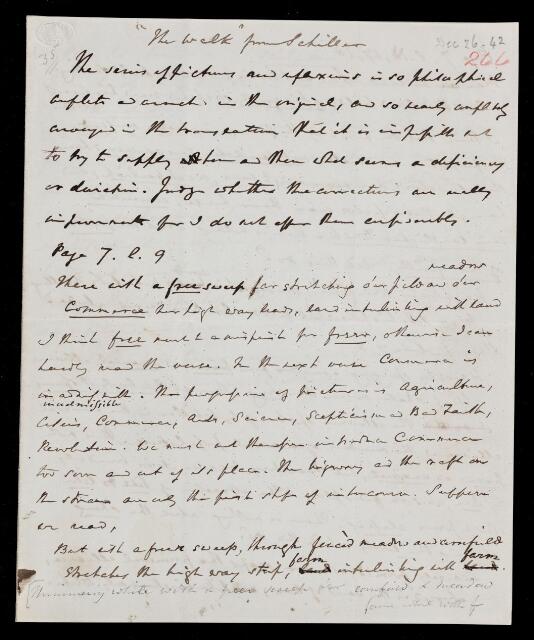 "The Walk" from Schiller
Dec 26 - 42
266
35
The series of pictures and reflexions is so philosophical
complete and in the original, and so nearly completely
conveyed in the translation that it is impossible not
to try to supply here and there what seems a deficiency
or deviation. Judge whether the corrections are really
improvements for I do not offer them
Page 7. l. 9
meadow
There with a free sweep far stretching o'er field and o'er
Commerce her high way leads, land interlinking with land
I think free must be a misprint for freer, otherwise I can
hardly read the verse. In the next verse Commerce is
inadmissible
inadmissible. The progression of pictures is Agriculture,
Cities, Commerce, Arts, Science, Scepticism and Bad Faith,
Revolution. We must not therefore introduce Commerce
too soon and out of its place. The highway and the raft on
the stream are only the first steps of intercourse. Suppose
we read,
But with a freer sweep, through fenced meadow and cornfield
farm farm
Stretches the high way strip, land interlinking with land.
white with a freer sweep o'er cornfield & meadow
farm with